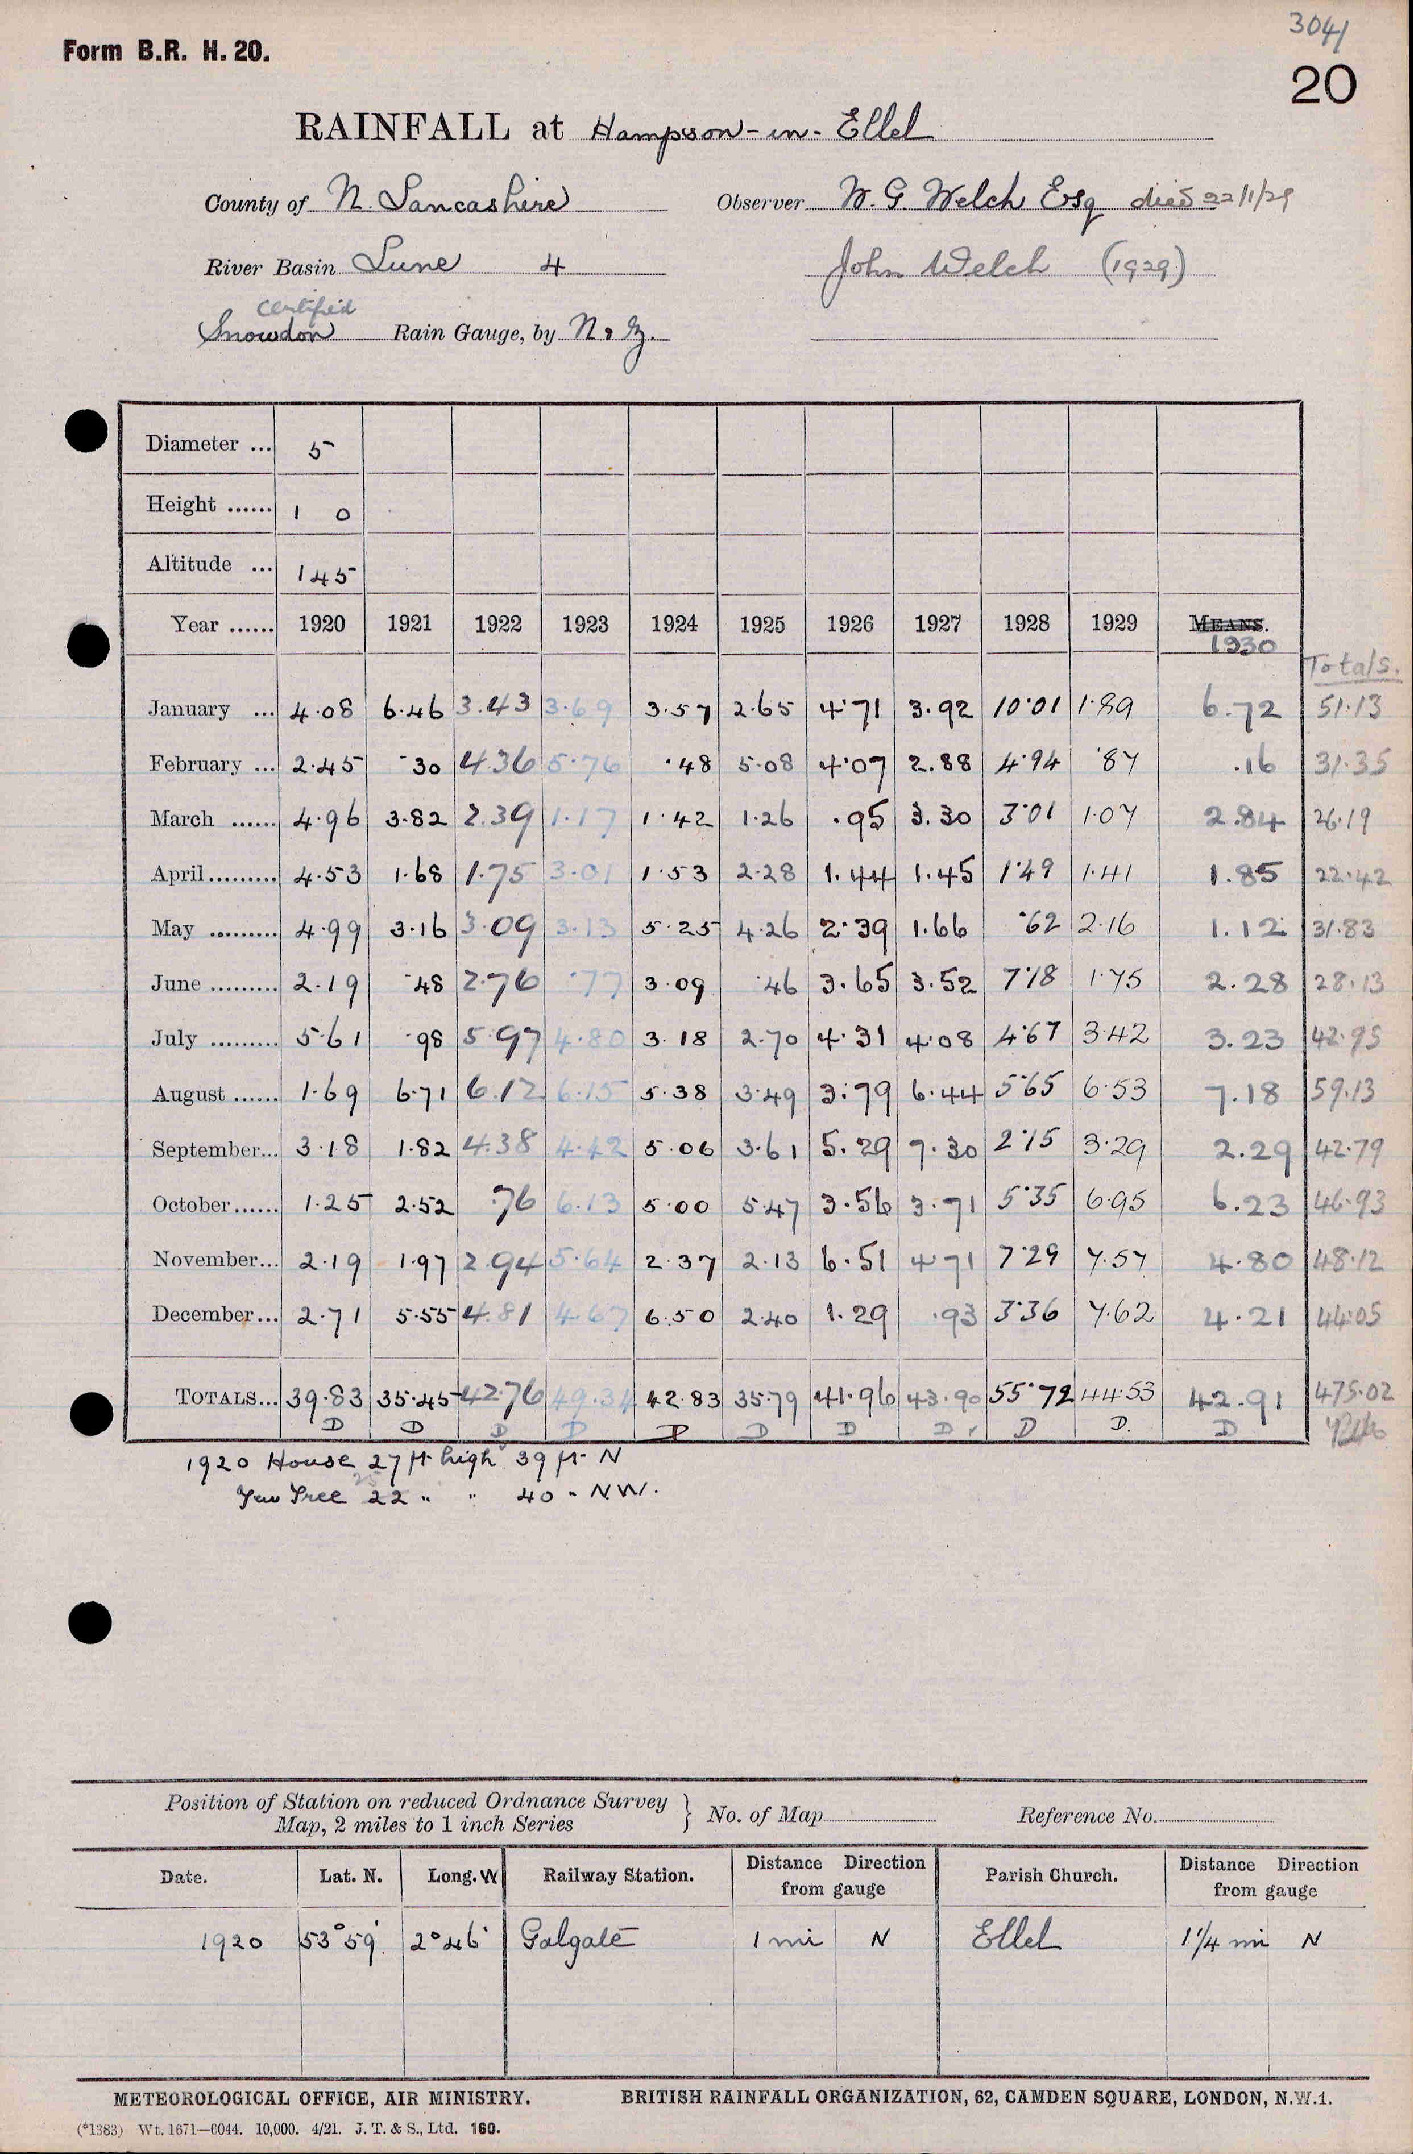 3041
Form B.R. H. 20.
20
RAINFALL at Hampson-in-Ellel
County of N. Lancashire Observer W. G. Welch Esq died 22/1/29
River Basin Lune 4 John Welch (1929)
certified
Snowdon Rain Gauge, by N. & Z.
Diameter ... 5
Height ...... 1 0
Altitude ... 145
Year ...... 1920 1921 1922 1923 1924 1925 1926 1927 1928 1929 MEANS.
1930
Totals.
January ... 4.08 6.46 3.43 3.69 3.57 2.65 4.71 3.92 10.01 1.89 6.72 51.13
February ... 2.45 .30 4.36 5.76 .48 5.08 4.07 2.88 4.94 .87 .16 31.35
March ...... 4.96 3.82 2.39 1.17 1.42 1.26 .95 3.30 3.01 1.07 2.84 26.19
April......... 4.53 1.68 1.75 3.01 1.53 2.28 1.44 1.45 1.49 1.41 1.85 22.42
May ......... 4.99 3.16 3.09 3.13 5.25 4.26 2.39 1.66 .62 2.16 1.12 31.83
June ......... 2.19 .48 2.76 .77 3.09 .46 3.65 3.52 7.18 1.75 2.28 28.13
July ......... 5.61 .98 5.97 4.80 3.18 2.70 4.31 4.08 4.67 3.42 3.23 42.95
August ...... 1.69 6.71 6.12 6.15 5.38 3.49 3.79 6.44 5.65 6.53 7.18 59.13
September... 3.18 1.82 4.38 4.42 5.06 3.61 5.29 7.30 2.15 3.29 2.29 42.79
October...... 1.25 2.52 .76 6.13 5.00 5.47 3.56 3.71 5.35 6.95 6.23 46.93
November... 2.19 1.97 2.94 5.64 2.37 2.13 6.51 4.71 7.29 7.57 4.80 48.12
December... 2.71 5.55 4.81 4.67 6.50 2.40 1.29 .93 3.36 7.62 4.21 44.05
TOTALS... 39.83 35.45 42.76 49.34 42.83 35.79 41.96 43.90 55.72 44.53 42.91 475.02
D D D D D D D D D D. D
1920 House 27 ft high 39 ft N
25
Yew Tree 22 " " 40 " N.W.
Position of Station on reduced Ordnance Survey
Map, 2 miles to 1 inch Series } No. of Map Reference No.
Date. Lat. N. Long. W Railway Station. Distance Direction from gauge Parish Church. Distance Direction from gauge
1920 53° 59' 2° 46' Galgate 1 mi N Ellel 1 1/4 mi N
METEOROLOGICAL OFFICE, AIR MINISTRY. BRITISH RAINFALL ORGANIZATION, 62, CAMDEN SQUARE, LONDON, N.W.1.
(*1383) Wt. 1671—6044. 10,000. 4/21. J. T. & S., Ltd. 160.